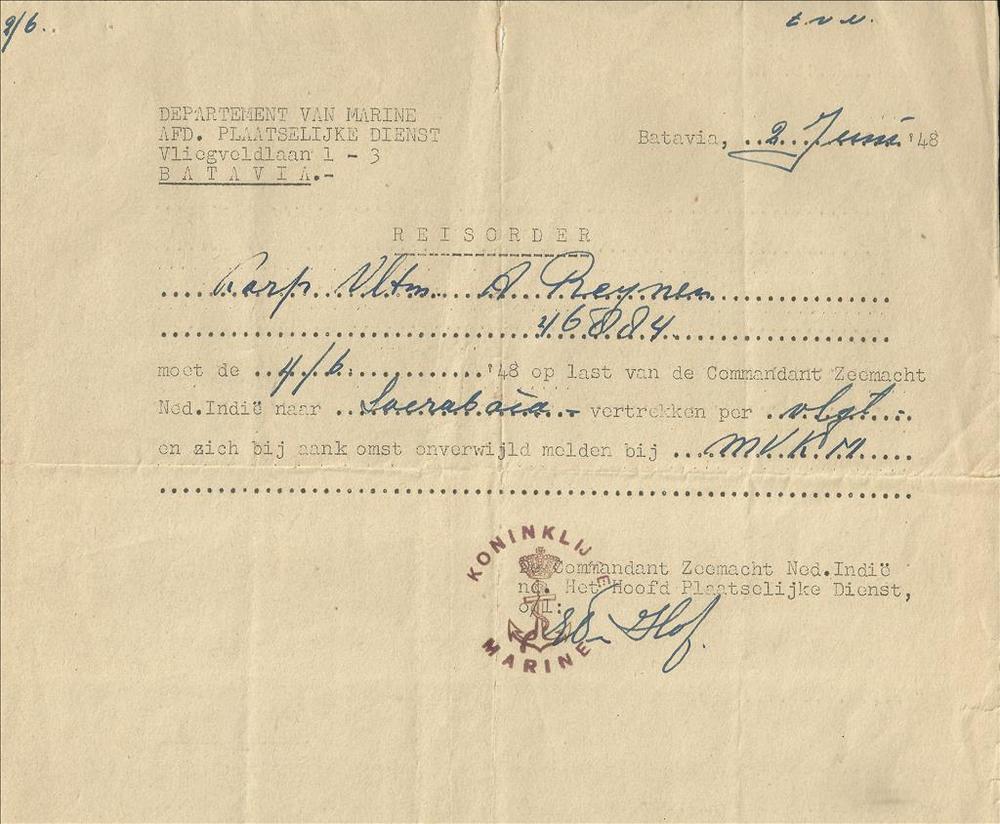 2/6..
t v u.
DEPARTEMENT VAN MARINE
AFD. PLAATSELIJKE DIENST
Vliegveldlaan 1 - 3
B A T A V I A.-
Batavia, ..2..Juni.'48
R E I S O R D E R
Korp Vltm A Reynen
46884
moet de ..4/6...........'48 op last van de Commandant Zeemacht
Ned.Indië naar ..Soerabaia.- vertrekken per ..vlgt.-.
en zich bij aankomst onverwijld melden bij ...MVKM.....
KONINKLIJKE
MARINE
De Commandant Zeemacht Ned.Indië
no. Het Hoofd Plaatselijke Dienst,
o/I:
Hof.